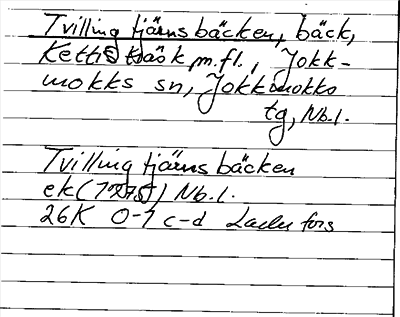 Tvillingtjärnsbäcken, bäck,
m.fl., Jokk-
mokks sn, Jokkmokks
tg, Nb.l.
Tvillingtjärnsbäcken
ek Nb.l.
26K 0-1 c-d